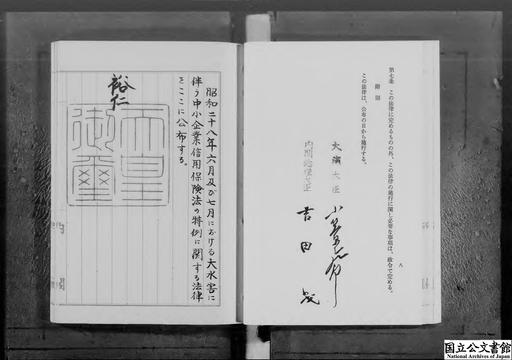 第七条 この法律に定めるものの外、この法律の施行に関し必要な事項は、政令で定める。
附則
この法律は、公布の日から施行する。
八
大蔵大臣
内閣総理大臣
吉田茂
昭和二十八年六月及び七月における大水害に
伴う中小企業信用保険法の特例に関する法律
をここに公布する。
裕仁
天皇
御璽
国立公文書館
National Archives of Japan